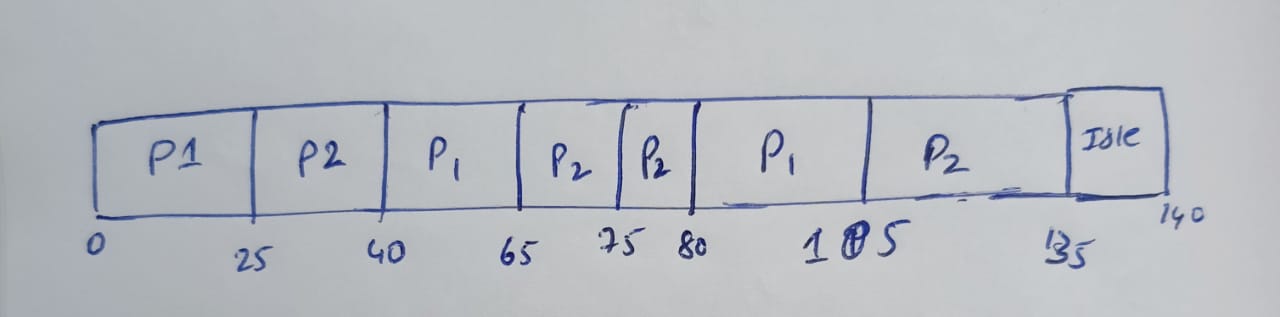 P1 P2 P₁ P₂ P₂ P₁ P₂ Idle
0 25 40 65 75 80 105 135 140